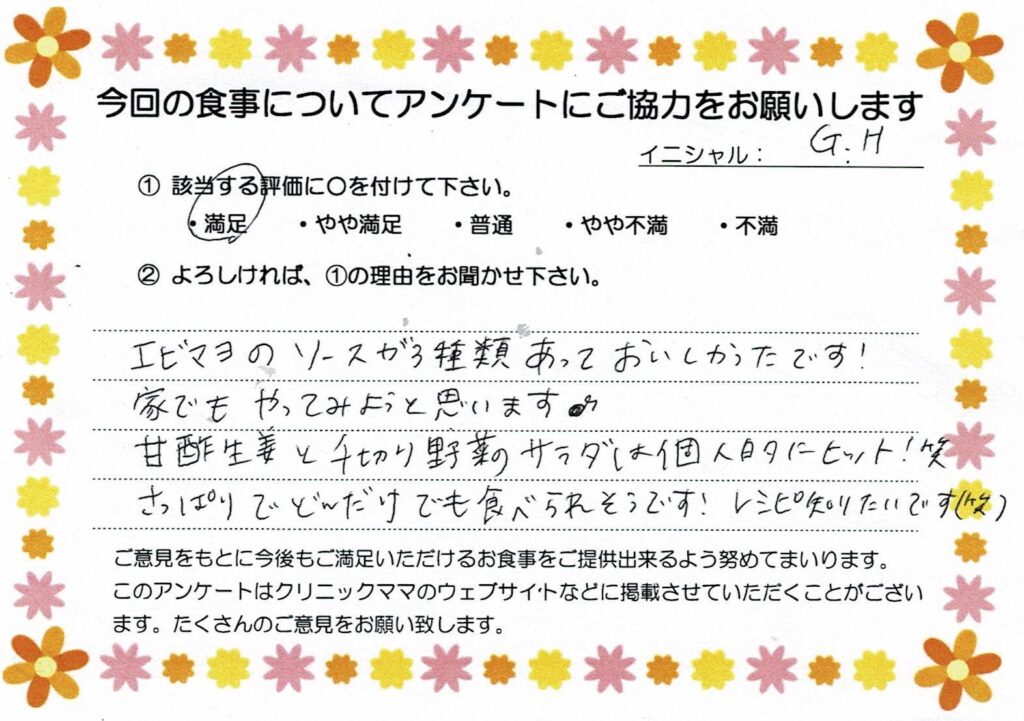 今回の食事についてアンケートにご協力をお願いします
イニシャル： G.H
① 該当する評価に〇を付けて下さい。
・満足 ・やや満足 ・普通 ・やや不満 ・不満
② よろしければ、①の理由をお聞かせ下さい。
エビマヨのソースが3種類あっておいしかったです!
家でもやってみようと思います♪
甘酢生姜と千切り野菜のサラダは個人的にヒット!笑
さっぱりでどんだけでも食べられそうです! レシピ知りたいです(笑)
ご意見をもとに今後もご満足いただけるお食事をご提供出来るよう努めてまいります。
このアンケートはクリニックママのウェブサイトなどに掲載させていただくことがござい
ます。たくさんのご意見をお願い致します。